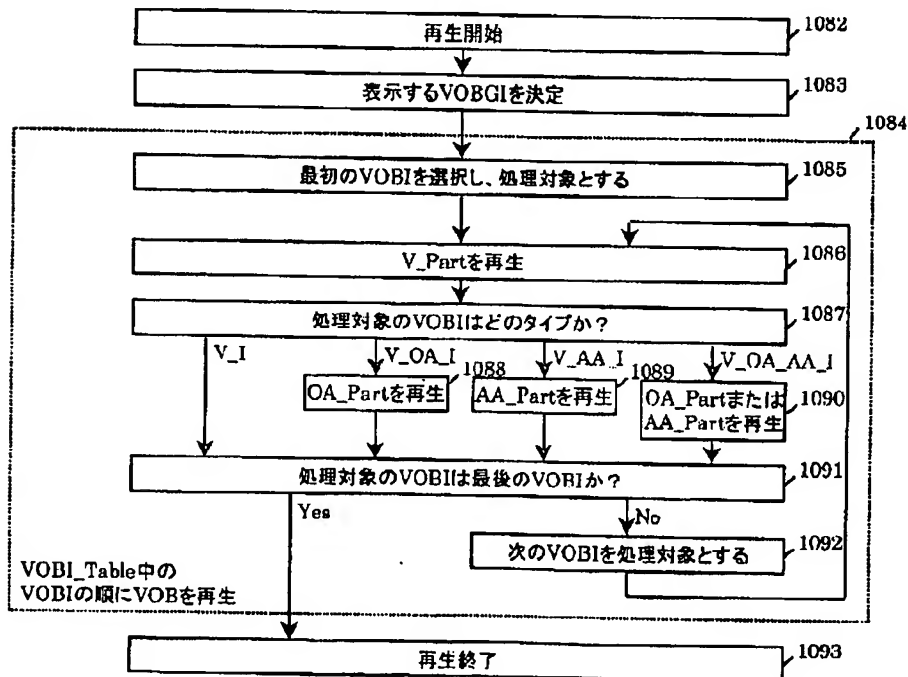 再生開始
1082
表示するVOBGIを決定
1083
1084
最初のVOBIを選択し、処理対象とする
1085
V_Partを再生
1086
処理対象のVOBIはどのタイプか？
1087
V_I
V_OA_I
V_AA_I
V_OA_AA_I
1088
OA_Partを再生
1089
AA_Partを再生
1090
OA_Partまたは
AA_Partを再生
処理対象のVOBIは最後のVOBIか？
1091
Yes
No
次のVOBIを処理対象とする
1092
VOBI_Table中の
VOBIの順にVOBを再生
再生終了
1093